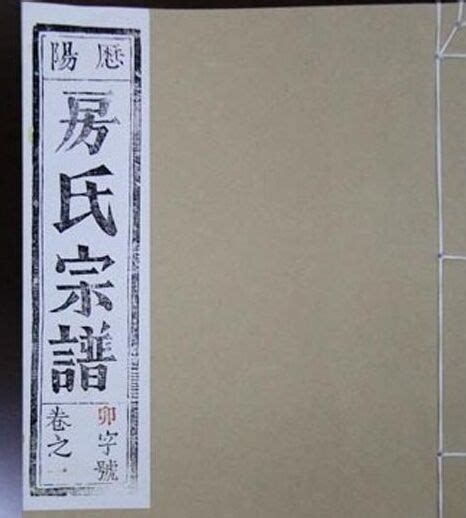 歷陽
房氏宗譜
卯字號
卷之一